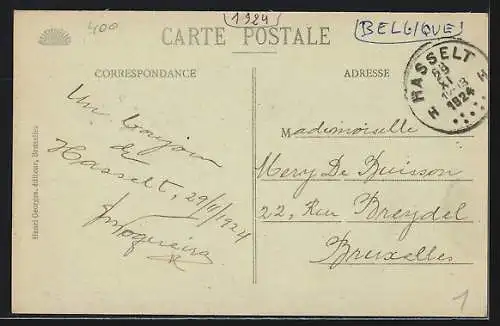 400
(1924)
(BELGIQUE)
CARTE POSTALE
CORRESPONDANCE
ADRESSE
HASSELT
29
XI
1924
H H
Un bonjour
de
Hasselt, 29/11/1924
Mademoiselle
Mery De Buisson
22, Rue Breydel
Bruxelles
Henri Georges, éditeur, Bruxelles
1